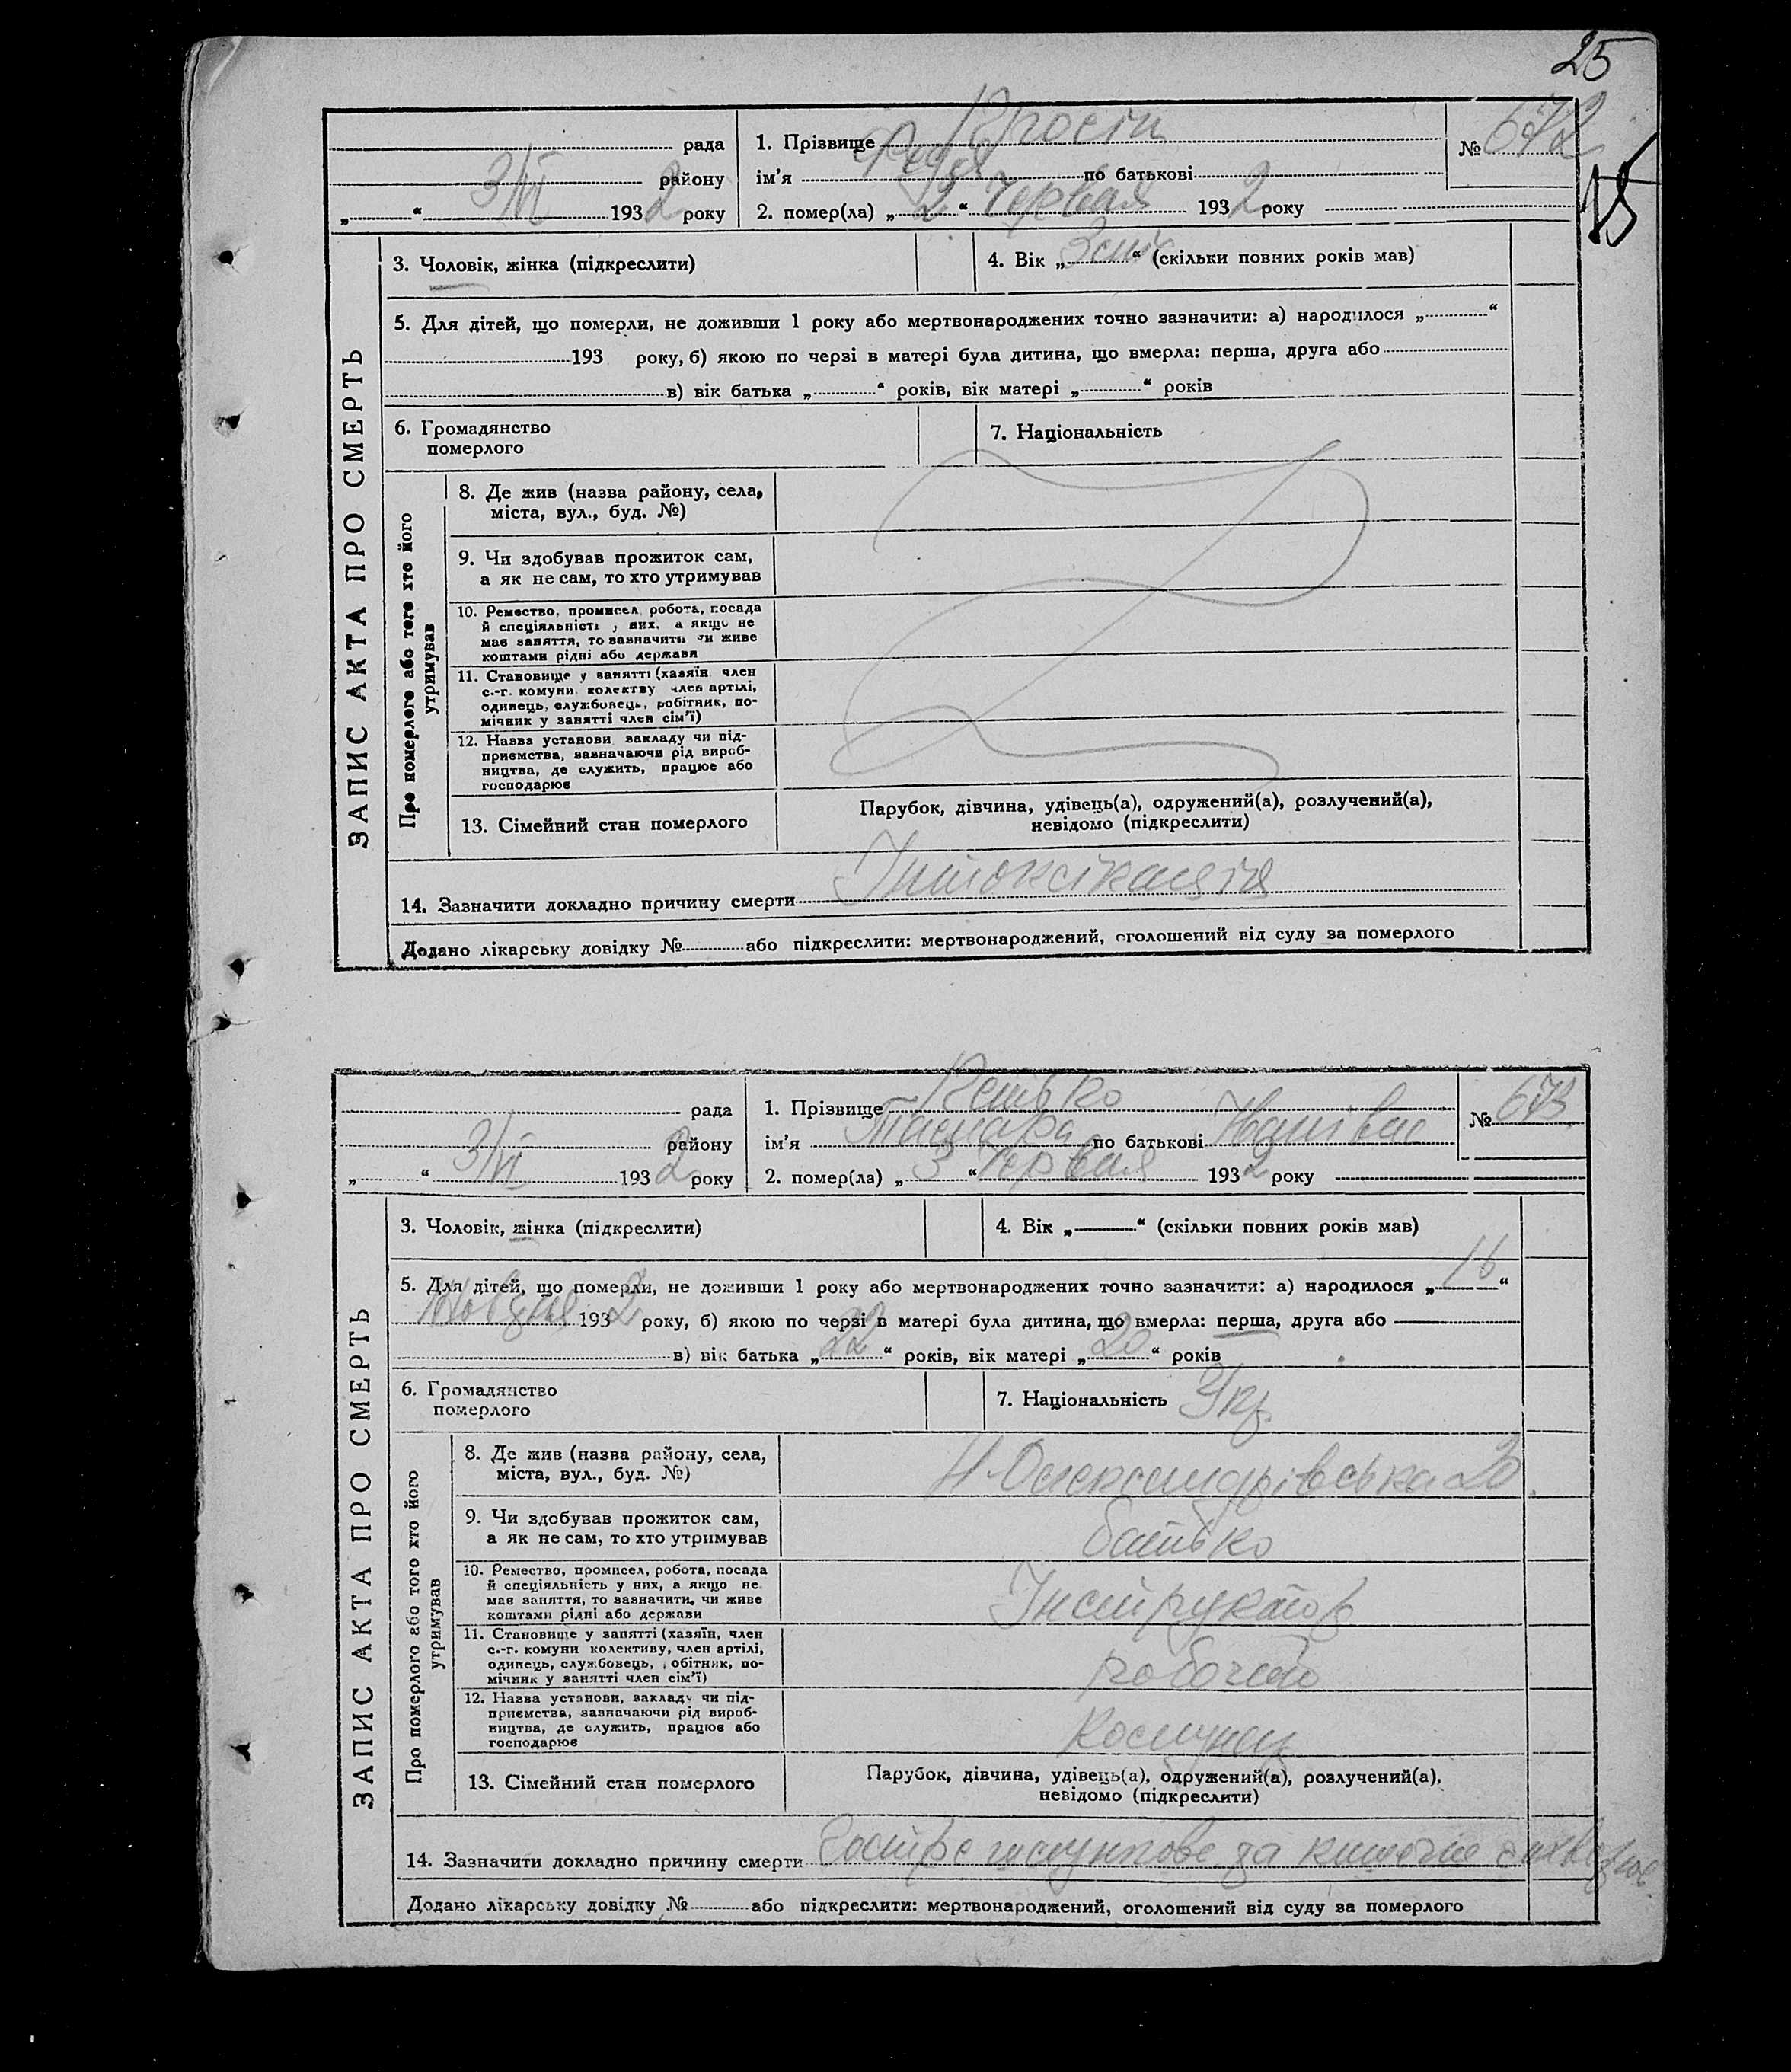 25
рада
1. Прізвище
№ 672
району
ім'я Федя по батькові
„ “ 3/VI 1932 року
2. помер(ла) „ 2 “ Червня 1932 року
ЗАПИС АКТА ПРО СМЕРТЬ
3. Чоловік, жінка (підкреслити)
4. Вік „ “ (скільки повних років мав)
5. Для дітей, що померли, не доживши 1 року або мертвонароджених точно зазначити: а) народилося „ “
193 року, б) якою по черзі в матері була дитина, що вмерла: перша, друга або
в) вік батька „ “ років, вік матері „ “ років
6. Громадянство
померлого
7. Національність
Про померлого або того хто його
утримував
8. Де жив (назва району, села,
міста, вул., буд. №)
9. Чи здобував прожиток сам,
а як не сам, то хто утримував
10. Ремество, промисел, робота, посада
й спеціяльність у них, а якщо не
має заняття, то зазначити чи живе
коштами рідні або держави
11. Становище у занятті (хазяїн, член
с.-г. комуни, колективу член артілі,
одинець, службовець, робітник, по-
мічник у занятті член сім'ї)
12. Назва установи, закладу чи під-
приємства, зазначаючи рід вироб-
ництва, де служить, працює або
господарює
13. Сімейний стан померлого
Парубок, дівчина, удівець(а), одружений(а), розлучений(а),
невідомо (підкреслити)
14. Зазначити докладно причину смерти Інтоксікація
Додано лікарську довідку № або підкреслити: мертвонароджений, оголошений від суду за померлого
рада
1. Прізвище Кетько
№ 673
району
ім'я Тамара по батькові
„ “ 3/VI 1932 року
2. помер(ла) „ 3 “ Червня 1932 року
ЗАПИС АКТА ПРО СМЕРТЬ
3. Чоловік, жінка (підкреслити)
4. Вік „ “ (скільки повних років мав)
5. Для дітей, що померли, не доживши 1 року або мертвонароджених точно зазначити: а) народилося „ 16 “
1932 року, б) якою по черзі в матері була дитина, що вмерла: перша, друга або
в) вік батька „ 22 “ років, вік матері „ 20 “ років
6. Громадянство
померлого
7. Національність Укр.
Про померлого або того хто його
утримував
8. Де жив (назва району, села,
міста, вул., буд. №)
Н-Олександрівська 20.
9. Чи здобував прожиток сам,
а як не сам, то хто утримував
батько
10. Ремество, промисел, робота, посада
й спеціяльність у них, а якщо не
має заняття, то зазначити, чи живе
коштами рідні або держави
Інструктор
11. Становище у занятті (хазяїн, член
с.-г. комуни колективу, член артілі,
одинець, службовець, робітник, по-
мічник у занятті член сім'ї)
12. Назва установи, закладу чи під-
приємства, зазначаючи рід вироб-
ництва, де служить, працює або
господарює
13. Сімейний стан померлого
Парубок, дівчина, удівець(а), одружений(а), розлучений(а),
невідомо (підкреслити)
14. Зазначити докладно причину смерти Гостре шлункове за кишечне
Додано лікарську довідку № або підкреслити: мертвонароджений, оголошений від суду за померлого